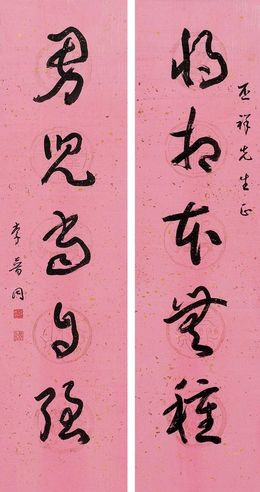 將相本無種
男兒當自強
正祥先生正
李普同